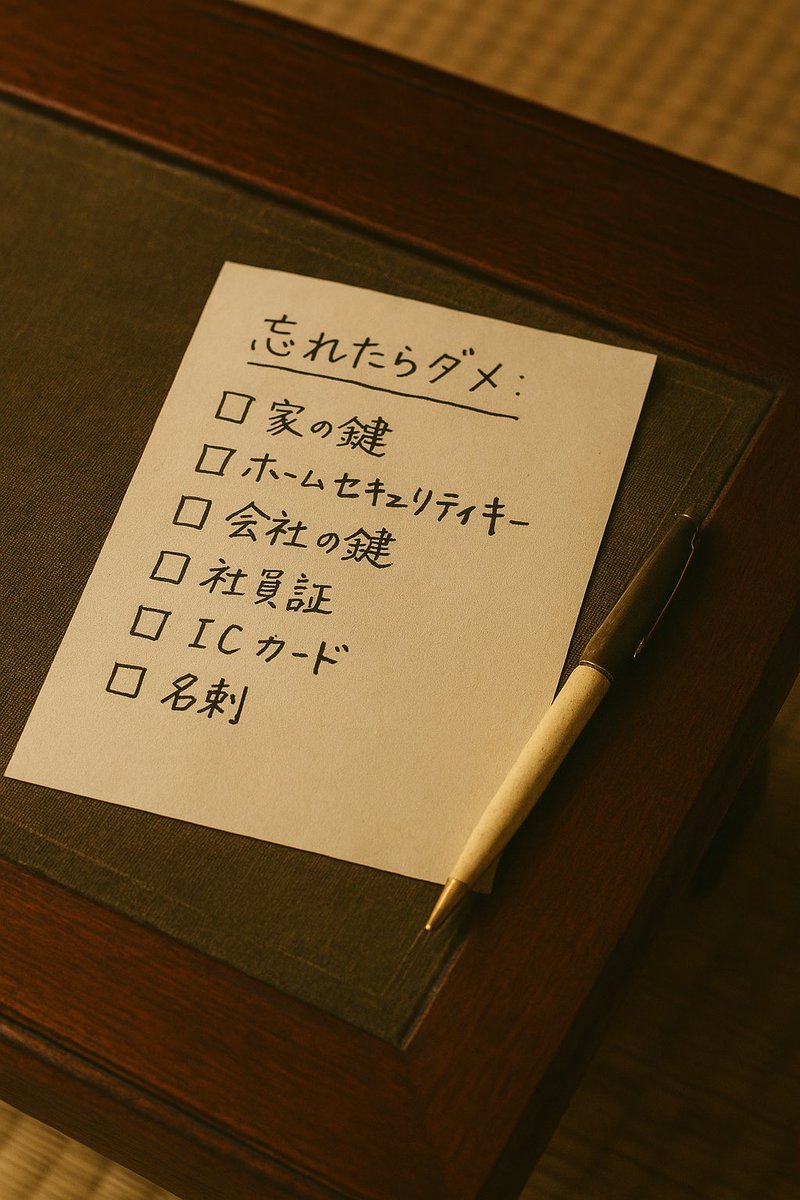 忘れたらダメ:
□ 家の鍵
□ ホームセキュリティキー
□ 会社の鍵
□ 社員証
□ ICカード
□ 名刺